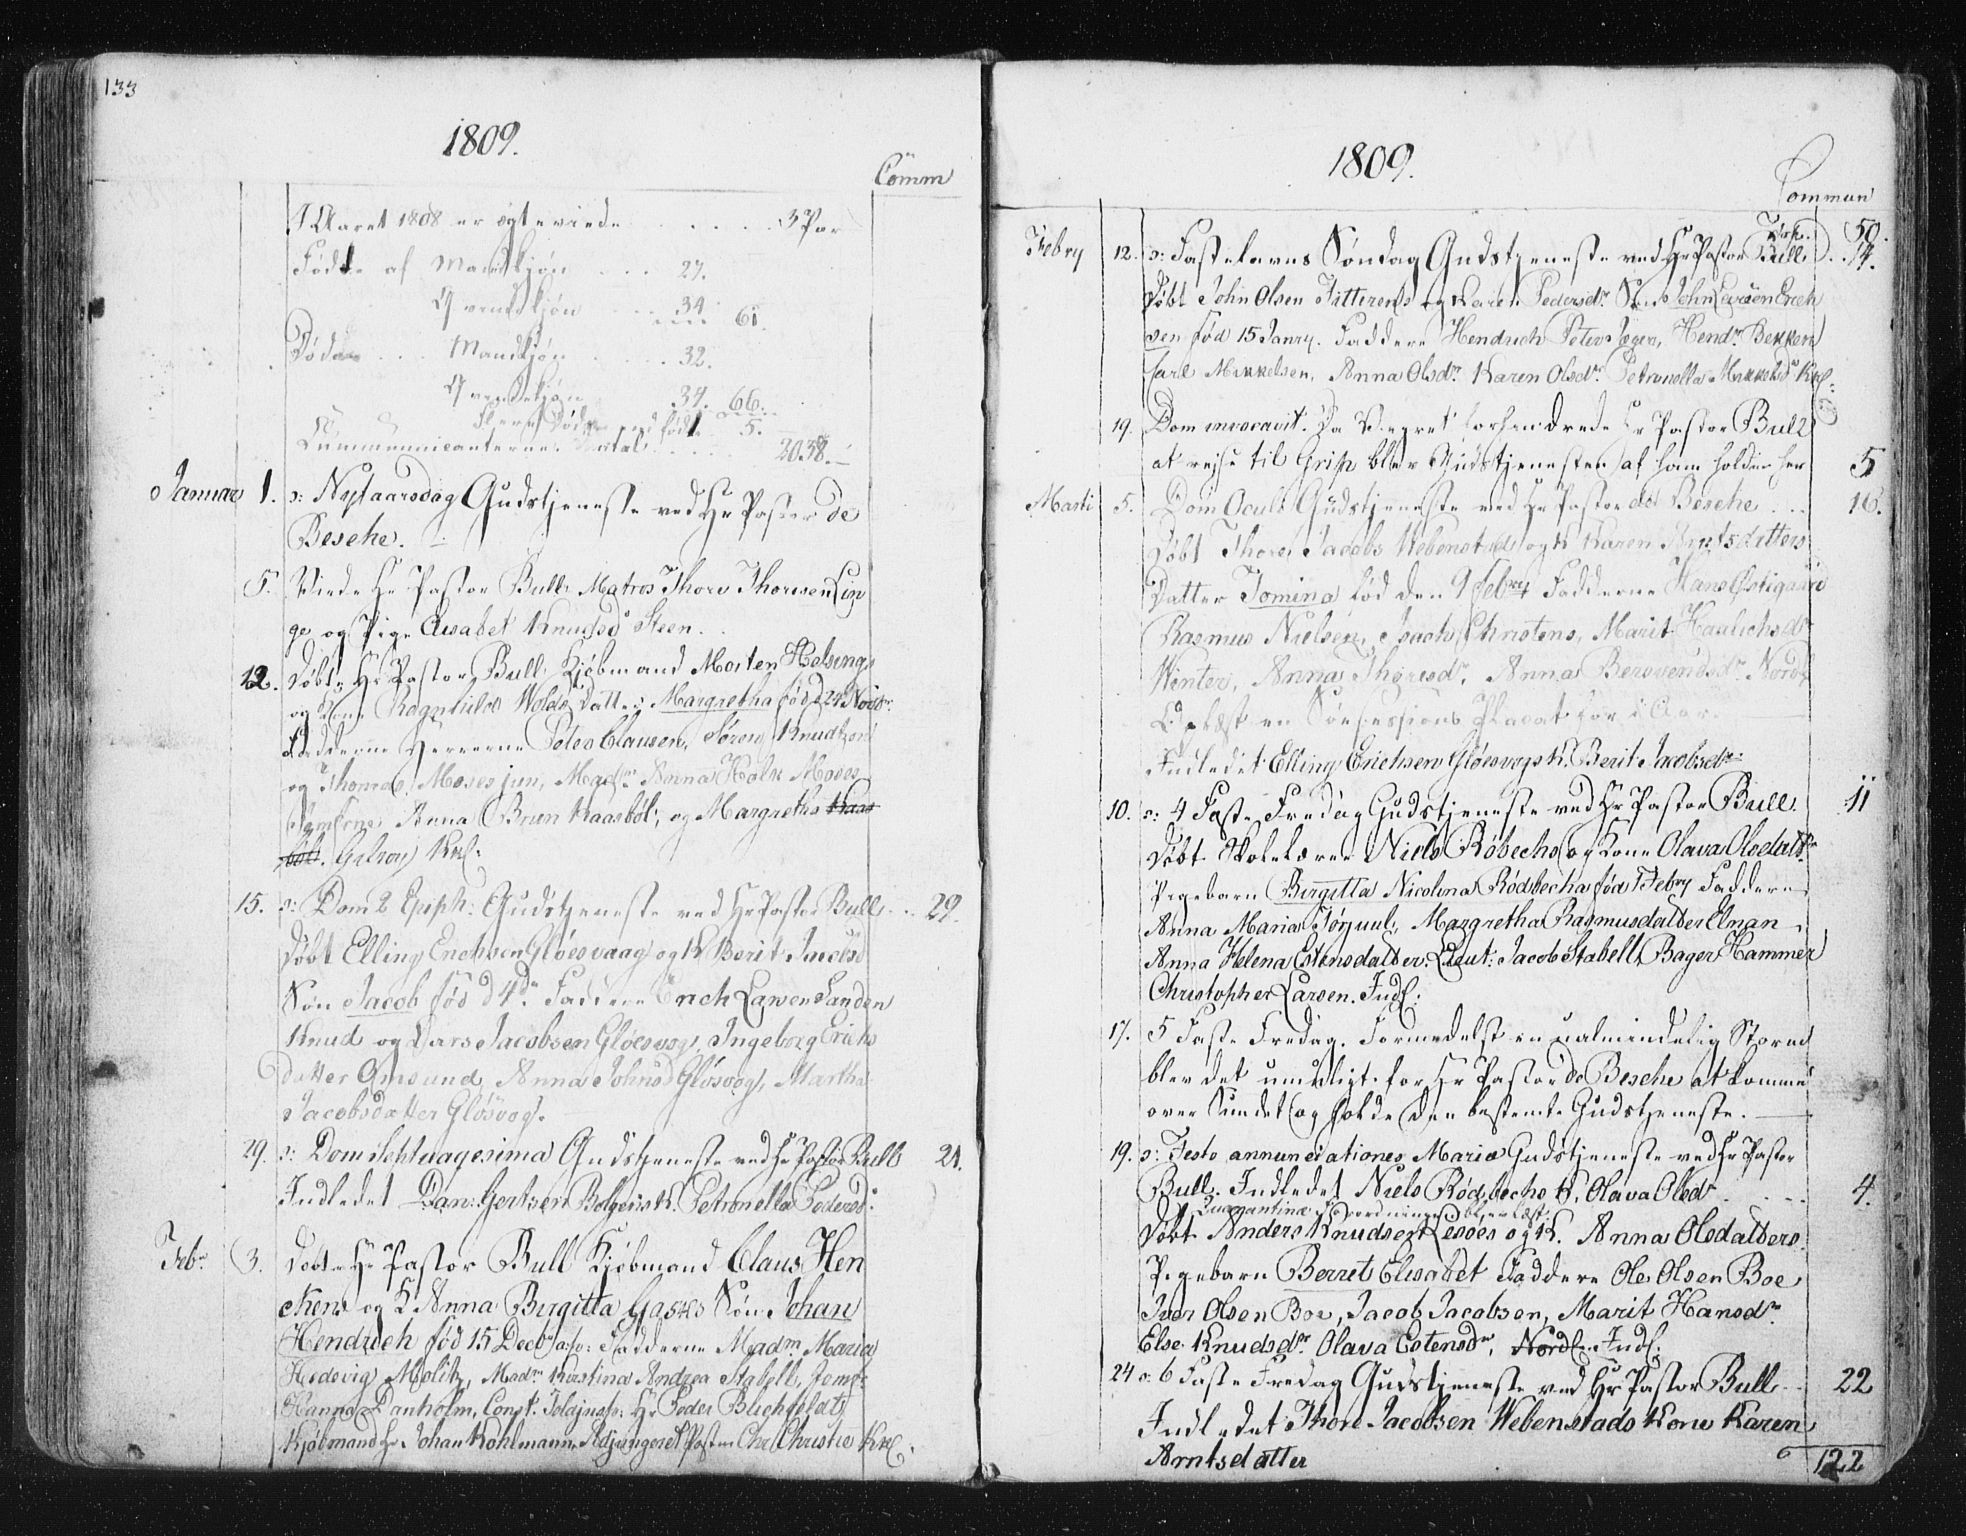 133
1809.
Comm
I Aaret 1808 er ægteviede . . . . . 3 Par
Fødte af Mandkjøn . . . 27.
Qvendkjøn . . . 34. 61.
Døde . . . Mandkjøn . . . 32.
Qvendekjøn 34. 66.
Flere Døde end født 5.
Communicanternes Antal . . . 2038.
Januar 1. s: Nytaarsdag Gudstjeneste ved Hr Pastor de
Besche.
5. Viede Hr Pastor Bull Matros Thore Thoresen Lin
ge og Pige Elisabet Knudsd Steen.
12. Døbte Hr Pastor Bull Kjøbmand Morten Helsings
og Kone Ragnhilds Wolds Datter Margretha fød d 24 Novbr.
Fadderne Herrerne Peter Clausen, Søren Knudtzon
og Thomas Moses jun, Madm Anna Holk Moses
Jomfrue Anna Brun Kaasbøl, og Margretha Kaas
bøl. Gilroy Kirk:
15. s: Dom 2 Epiph: Gudstjeneste ved Hr Pastor Bull . . 29.
Døbt Elling Erichsen Gløesvaag og K Berit Jacobsd
Søn Jacob fød d 4de Faddere Erich Larsen Sanden
Knud og Lars Jacobsen Gløesvog, Ingeborg Erichs
datter Omsund, Anna Johnsd Gløsvog, Martha
Jacobsdatter Gløsvog.
29. s: Dom Septuagesima Gudstjeneste ved Hr Pastor Bull 21.
Indledet Dan: Gertsen Bolgens K. Petronella Pedersd:
Febr 3. Døbte Hr Pastor Bull Kjøbmand Claus Hen
ckens og K Anna Birgitta Gasks Søn Johan
Hendrich fød 15 Decbr Fadderne Madm Maria
Hedevig Molitz, Madm Kirstina Andrea Stabell, Jomf:
Hanna Danholm, Const: Hr Peder Blichfeldt
Kjøbmand Hr Johan Kohlmann Adjungeret Pastor Chr Christie Kirk:
1809.
Commun
50.
Febry 12. s: Fastelavns Søndag Gudstjeneste ved Hr Pastor Bull . 14.
Døbt John Olsen Fitterens og Karen Pedersdr Søn John Erich
sen fød 15 Janry. Faddere Hendrich Peter Hendr Bekken
Carl Mikkelsen, Anna Olsdr Karen Olsdr Petronella Mikkelsdr Kirk:
19. Dom invocavit. Da Veyret forhindrede Hr Pastor Bull
at rejse til Grip blev Gudstjenesten af ham holden her 5
Marti 5. Dom Oculi Gudstjeneste ved Hr Pastor de Besche . . . 16.
Døbt Thore Jacobs Webenstads og K Karen Arntsdatters
Datter Tomina fød den 9 Febry Fadderne Hans Østigaard
Rasmus Nielsen, Christens, Marit
Winter, Anna Thoresdr, Anna Berovendsdr Nordl
Oplæst en Sessions Placat for i Aar.
Indledet Elling Erichsen Gløesvogs K. Berit Jacobsdr
10. s: 4 Faste Fredag Gudstjeneste ved Hr Pastor Bull. 11
Døbt Skolelærer Niels Røbechs og Kone Olava Olsdatr
Pigebarn Birgitta Nicolina Rødbecha fød Febry Faddere
Anna Maria Jørjuul, Margretha Rasmusdatter Elnan
Anna Helena Estensdatter: Lieut: Jacob Stabell, Bager Hammer
Christopher Larsen. Indl:
17. 5 Faste Fredag. Formedelst en ualmindelig Storm
blev det umuligt for Hr Pastor de Besche at komme
over Sundet og holde den bestemte Gudstjeneste.
19. s: Festo annunciationes Mariæ Gudstjeneste ved Hr Pastor
Bull. Indledet Niels Rødbechs K. Olava Olsdr . . . 4.
Quarantine Forordningen blev læst.
Døbt Anders Knudsen og K. Anna Olsdatters
Pigebarn Berret Elisabet Faddere Ole Olsen Boe
Iver Olsen Boe, Jacob Jacobsen, Marit Hansdr
Else Knudsdr Olava Estensdr, Nordl. Indl:
24 s: 6 Faste Fredag Gudstjeneste ved Hr Pastor Bull . . 22
Indledet Thore Jacobsen Webenstads Kone Karen
Arntsdatter
122